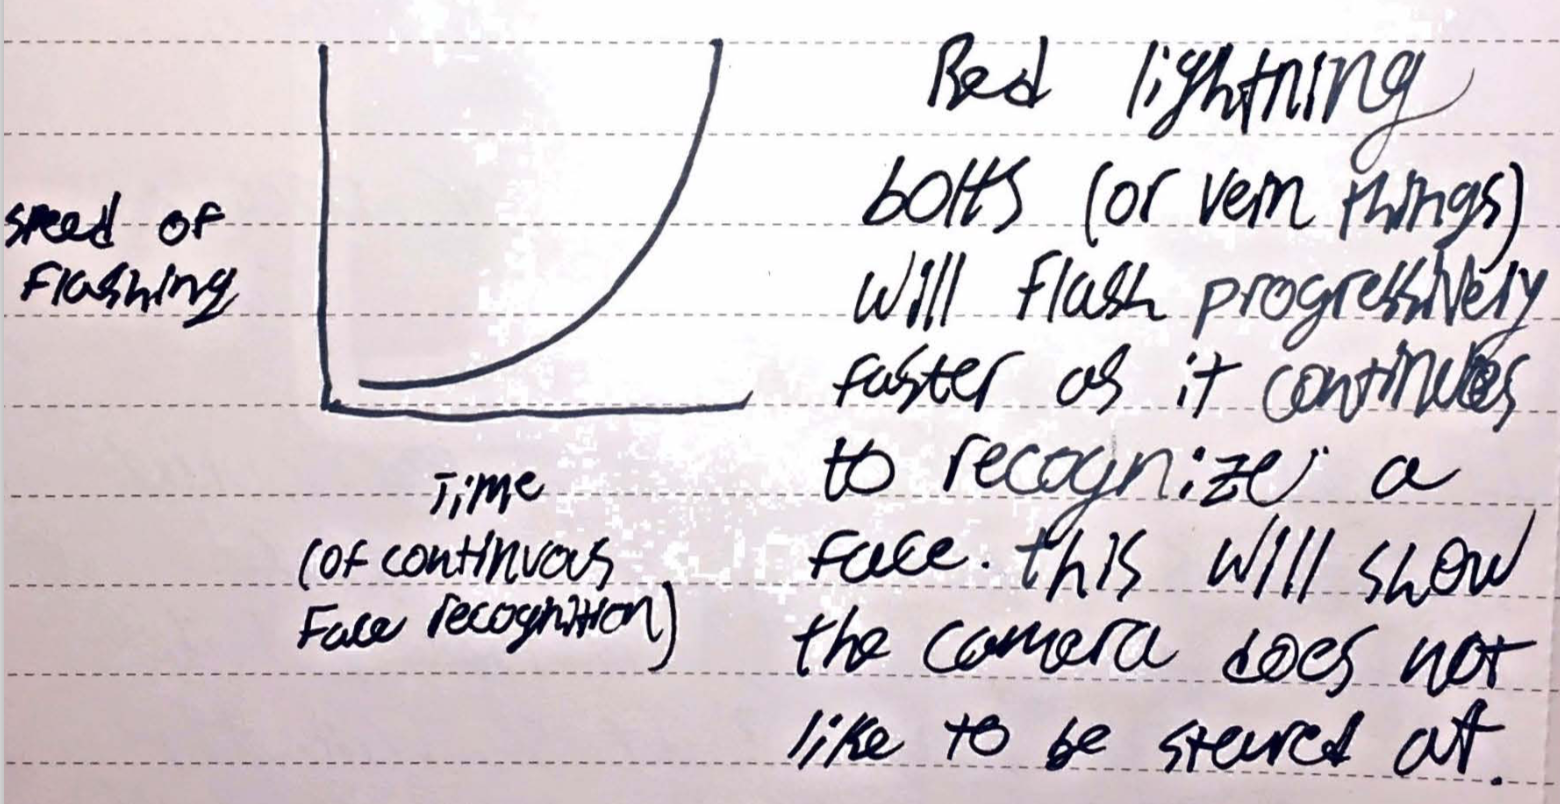 speed of
Flashing
Time
(of continuous
Face recognition)
Red lightning
bolts (or vein things)
will flash progressively
faster as it continues
to recognize a
face. this will show
the camera does not
like to be stared at.